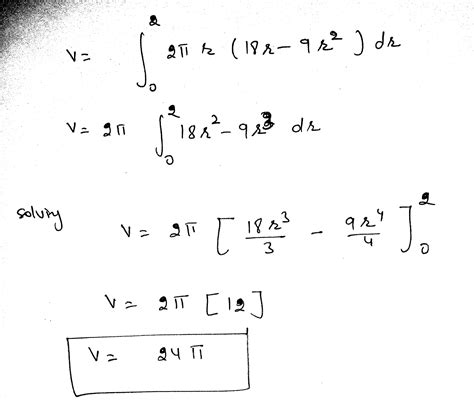 V = ∫₀² 2π r (18r − 9r²) dr
V = 2π ∫₀² 18r² − 9r³ dr
solving V = 2π [ 18r³/3 − 9r⁴/4 ]₀²
V = 2π [12]
V = 24π